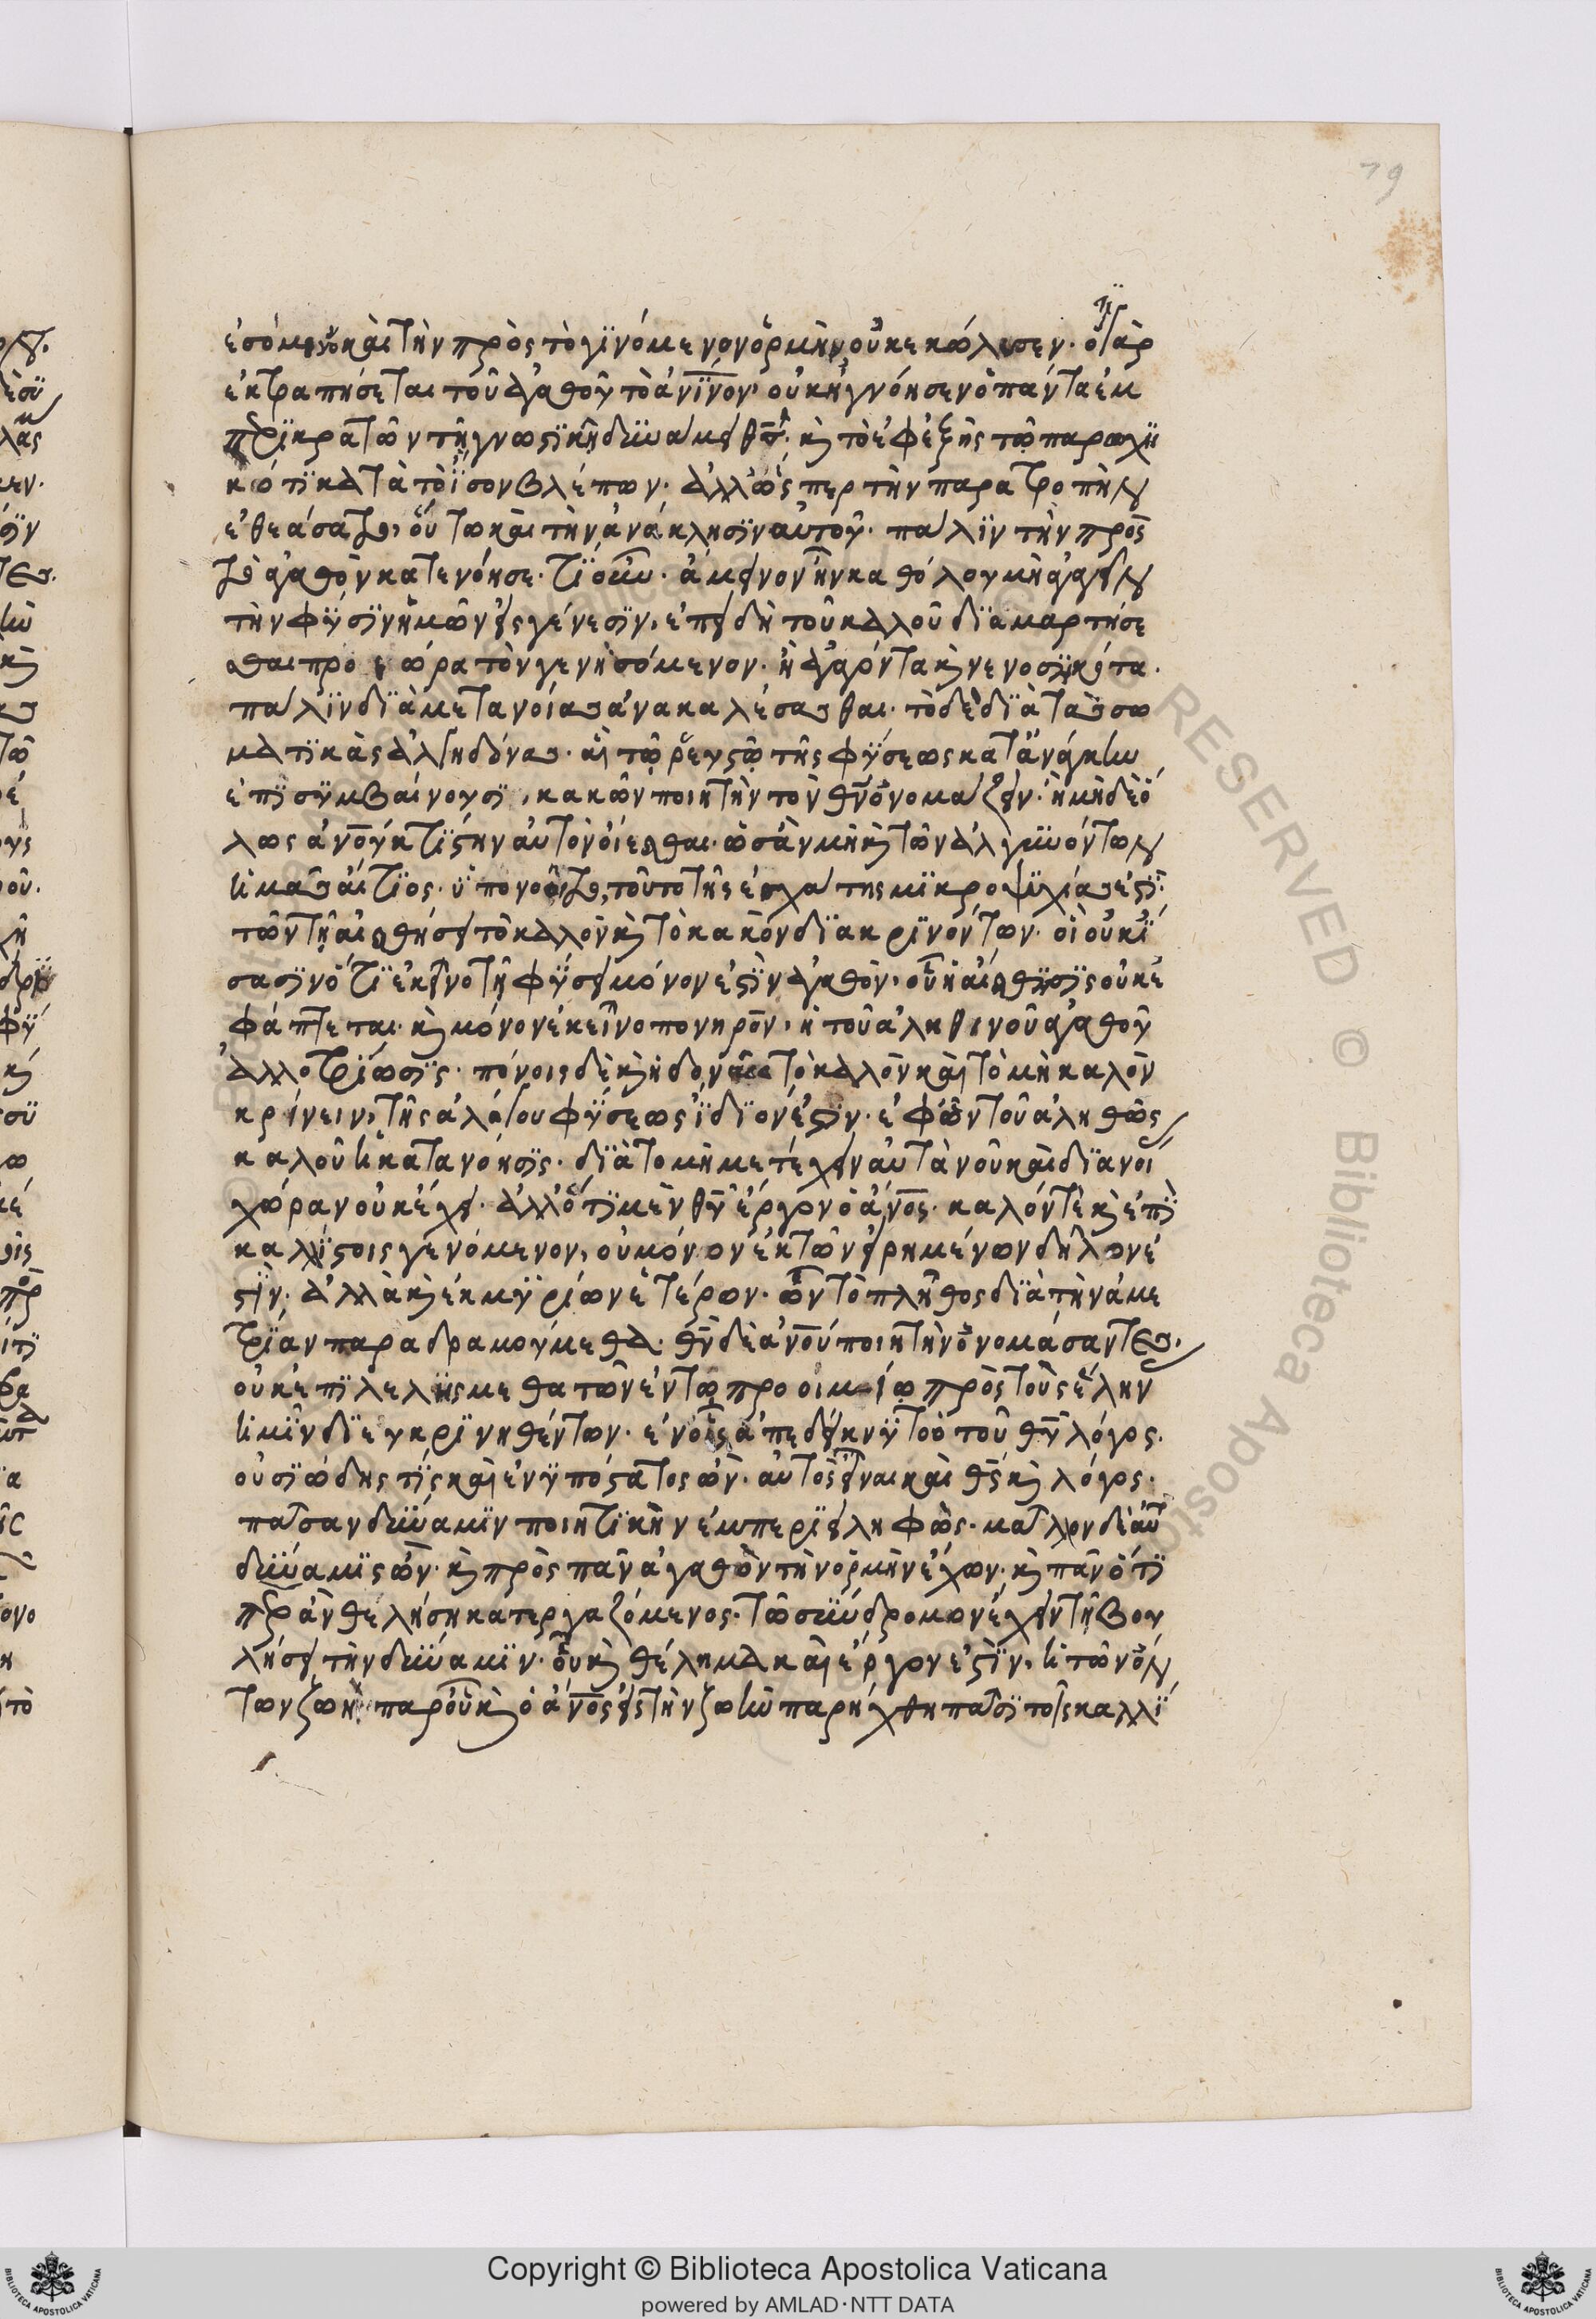 ἐσόμενον καὶ τὴν πρὸς τὸ γϊνόμενον ὁρμὴν οὐκ ἐκώλυσεν· ὅτϊ γὰρ
ἐκτραπήσεται τοῦ ἀγαθοῦ τὸ ἀνϊνον, οὐκ ἠγνόησεν ὁ πάντα ἐμ
πϊκρατῶν τῇ γνωστϊκῇ δϋνάμει· κ τὸ ἐφεξῆς τῷ παρωχϊ
κότϊ κατὰ τὸ ἴσον βλέπων· ἀλλ' ὥσπερ τὴν παρατροπὴν
ἐθεάσατο, οὕτω καὶ τὴν ἀνάκλησϊν αὐτοῦ· πάλϊν τὴν πρὸς
τὸ ἀγαθὸν κατενόησε· τϊ οὖν· ἄμεινον ἦν καθόλου μὴ ἀγαγεῖν
τὴν φϋσϊν ἡμῶν εἰς γένεσϊν, ἐπειδὴ τοῦ καλοῦ δϊαμαρτήσε
σθαι προεώρα τὸν γενησόμενον· ἢ ἀγαγόντα κ νενοσϊκότα·
πάλϊν δϊὰ μετανοίας ἀνακαλέσασθαι· τὸ δὲ δϊὰ τὰς σω
ματϊκὰς ἀλγηδόνας· αἳ τῷ ῥευστῷ τῆς φϋσεως κατ' ἀνάγκην
ἐπϊσϋμβαίνουσϊ, κακῶν ποιητὴν τὸν θν ὀνομάζειν· ἢ μὴ δὲ ὅ
λως ἀνου κτϊστην αὐτὸν οἴεσθαι· ὡς ἂν μὴ κ τῶν ἀλγϋνόντων
ἡμᾶς αἴτϊος· ὑπονοοῖτο, τοῦτο τῆς ἐσχάτης μϊκροψϋχίας ἐστϊ
τῶν τῇ αἰσθήσει τὸ καλὸν κ τὸ κακὸν δϊακρϊνόντων· οἳ οὐκ ἴ
σασϊν ὅτϊ ἐκεῖνο τῇ φϋσει μόνον ἐστϊν ἀγαθὸν, οὗ ἡ αἴσθησϊς οὐκ ἐ
φάπτεται· κ μόνον ἐκεῖνο πονηρὸν, ἡ τοῦ ἀληθινοῦ ἀγαθοῦ
ἀλλοτρϊωσϊς· πόνοις δὲ κ ἡδοναῖς τὸ καλὸν καὶ τὸ μὴ καλὸν
κρίνειν, τῆς ἀλόγου φϋσεως ἴδϊόν ἐστϊν· ἐφ' ὧν τοῦ ἀληθῶς
καλοῦ ἡ κατανόησϊς· δϊὰ τὸ μὴ μετέχειν αὐτὰ νοῦ καὶ δϊανοί
χώραν οὐκ ἔχει· ἀλλ' ὅτϊ μὲν θυ ἔργον ὁ ἄνος· καλόν τε κ ἐπϊ
καλλϊστοις γενόμενον, οὐ μόνον ἐκ τῶν εἰρημένων δῆλόν ἐ
στϊν· ἀλλὰ κ ἐκ μϋρίων ἑτέρων· ὧν τὸ πλῆθος δϊὰ τὴν ἀμε
τρϊαν παραδραμούμεθα· θν δὲ ἀνου ποιητὴν ὀνομάσαντες·
οὐκ ἐπϊλελήσμεθα τῶν ἐν τῷ προοιμίῳ πρὸς τοὺς ἕλην
ἡμῖν δϊευκρϊνηθέντων· ἐν οἷς ἀπεδείκνϋτο ὁ τοῦ θυ λόγος·
οὐσϊώδης τϊς καὶ ἐνϋπόστατος ὢν· αὐτὸς εἶναι καὶ θς κ λόγος·
πᾶσαν δϋναμϊν ποιητϊκὴν ἐμπερϊειληφὼς· μᾶλλον δὲ αὐτ
δϋναμϊς ὢν· κ πρὸς πᾶν ἀγαθὸν τὴν ὁρμὴν ἔχων· κ πᾶν ὅτϊ
πρ ἂν θελήσῃ κατεργαζόμενος· τῷ σϋνδρομον ἔχειν τῇ βου
λήσει τὴν δϋναμϊν· οὗ κ θέλημα καὶ ἔργον ἐστϊν, ἡ τῶν ὄν
των ζωὴ· παρ' οὗ κ ὁ ἄνος εἰς τὴν ζωὴν παρήχθη πᾶσϊ τοῖς καλλϊ